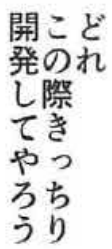 どれ
この際きっちり
開発してやろう